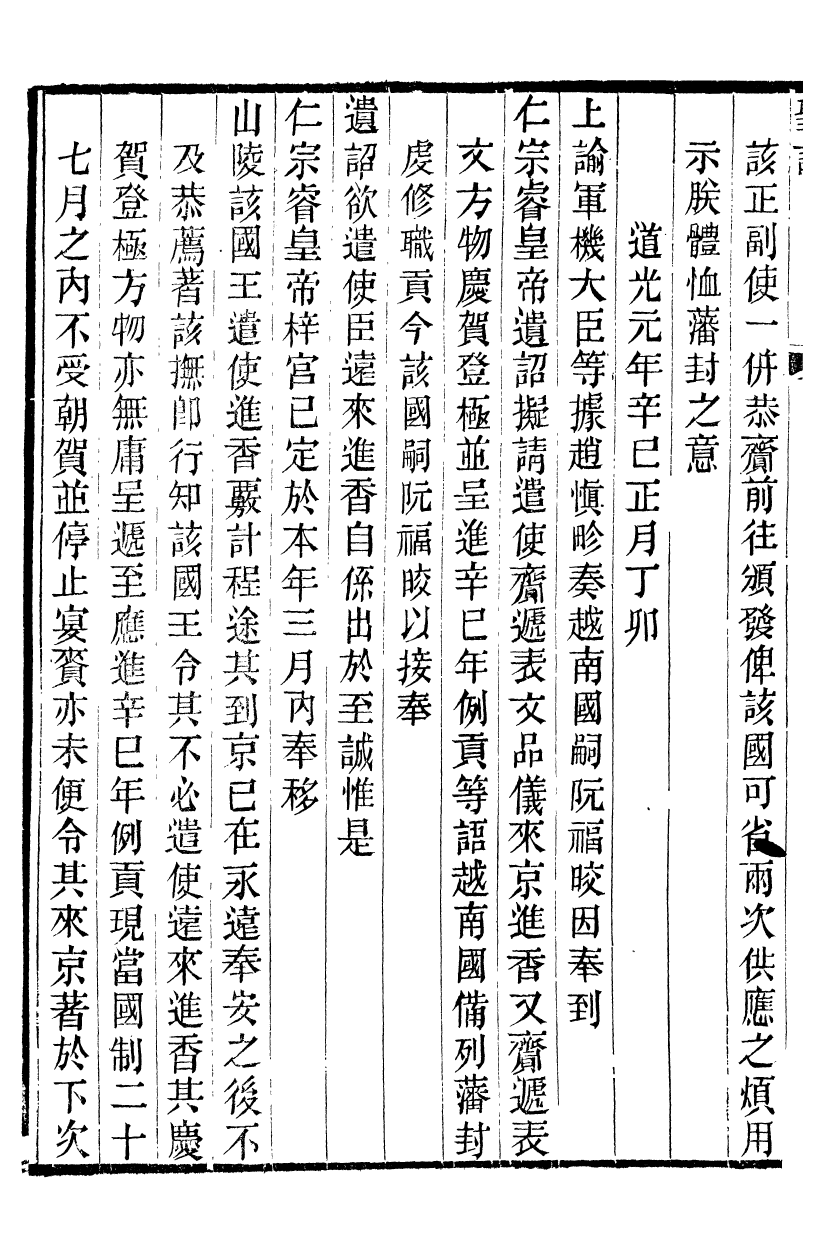 該正副使一併恭齎前往頒發俾該國可省兩次供應之煩用
示朕體恤藩封之意
道光元年辛巳正月丁卯
上諭軍機大臣等據趙慎畛奏越南國嗣阮福晈因奉到
仁宗睿皇帝遺詔擬請遣使齎遞表文品儀來京進香又齎遞表
文方物慶賀登極並呈進辛巳年例貢等語越南國備列藩封
虔修職貢今該國嗣阮福晈以接奉
遺詔欲遣使臣遠來進香自係出於至誠惟是
仁宗睿皇帝梓宮已定於本年三月內奉移
山陵該國王遣使進香覈計程途其到京已在永遠奉安之後不
及恭薦著該撫即行知該國王令其不必遣使遠來進香其慶
賀登極方物亦無庸呈遞至應進辛巳年例貢現當國制二十
七月之內不受朝賀並停止宴賚亦未便令其來京著於下次